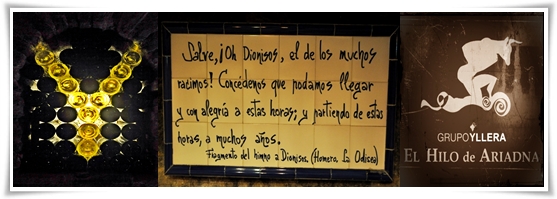 Salve, ¡Oh Dionisos, el de los muchos
racimos! Concédenos que podamos llegar
y con alegría a estas horas; y partiendo de estas
horas, a muchos años.
Fragmento del himno a Dionisos. (Homero. La Odisea)
GRUPO YLLERA
EL HILO de ARIADNA